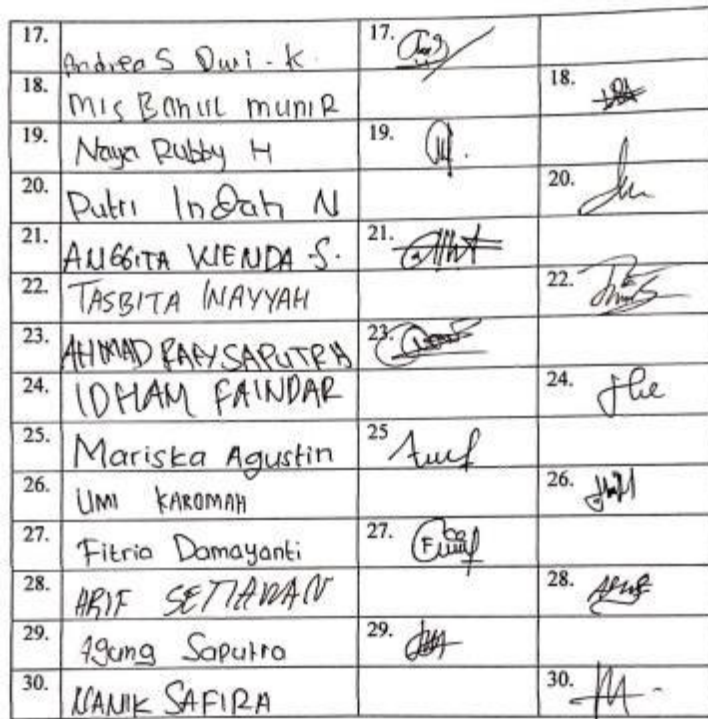 17. Andrea S Dwi - K. 17.
18. MIS BAHUL MUNIR 18.
19. Naya Rubby H 19.
20. Putri Indah N 20.
21. ANGGITA WENDA S. 21.
22. TASBITA INAYYAH 22.
23. AHMAD RAFY SAPUTRA 23.
24. IDHAM FAINDAR 24.
25. Mariska Agustin 25
26. UMI KAROMAH 26.
27. Fitria Damayanti 27.
28. ARIF SETIAWAN 28.
29. Agung Saputro 29.
30. NANIK SAFIRA 30.